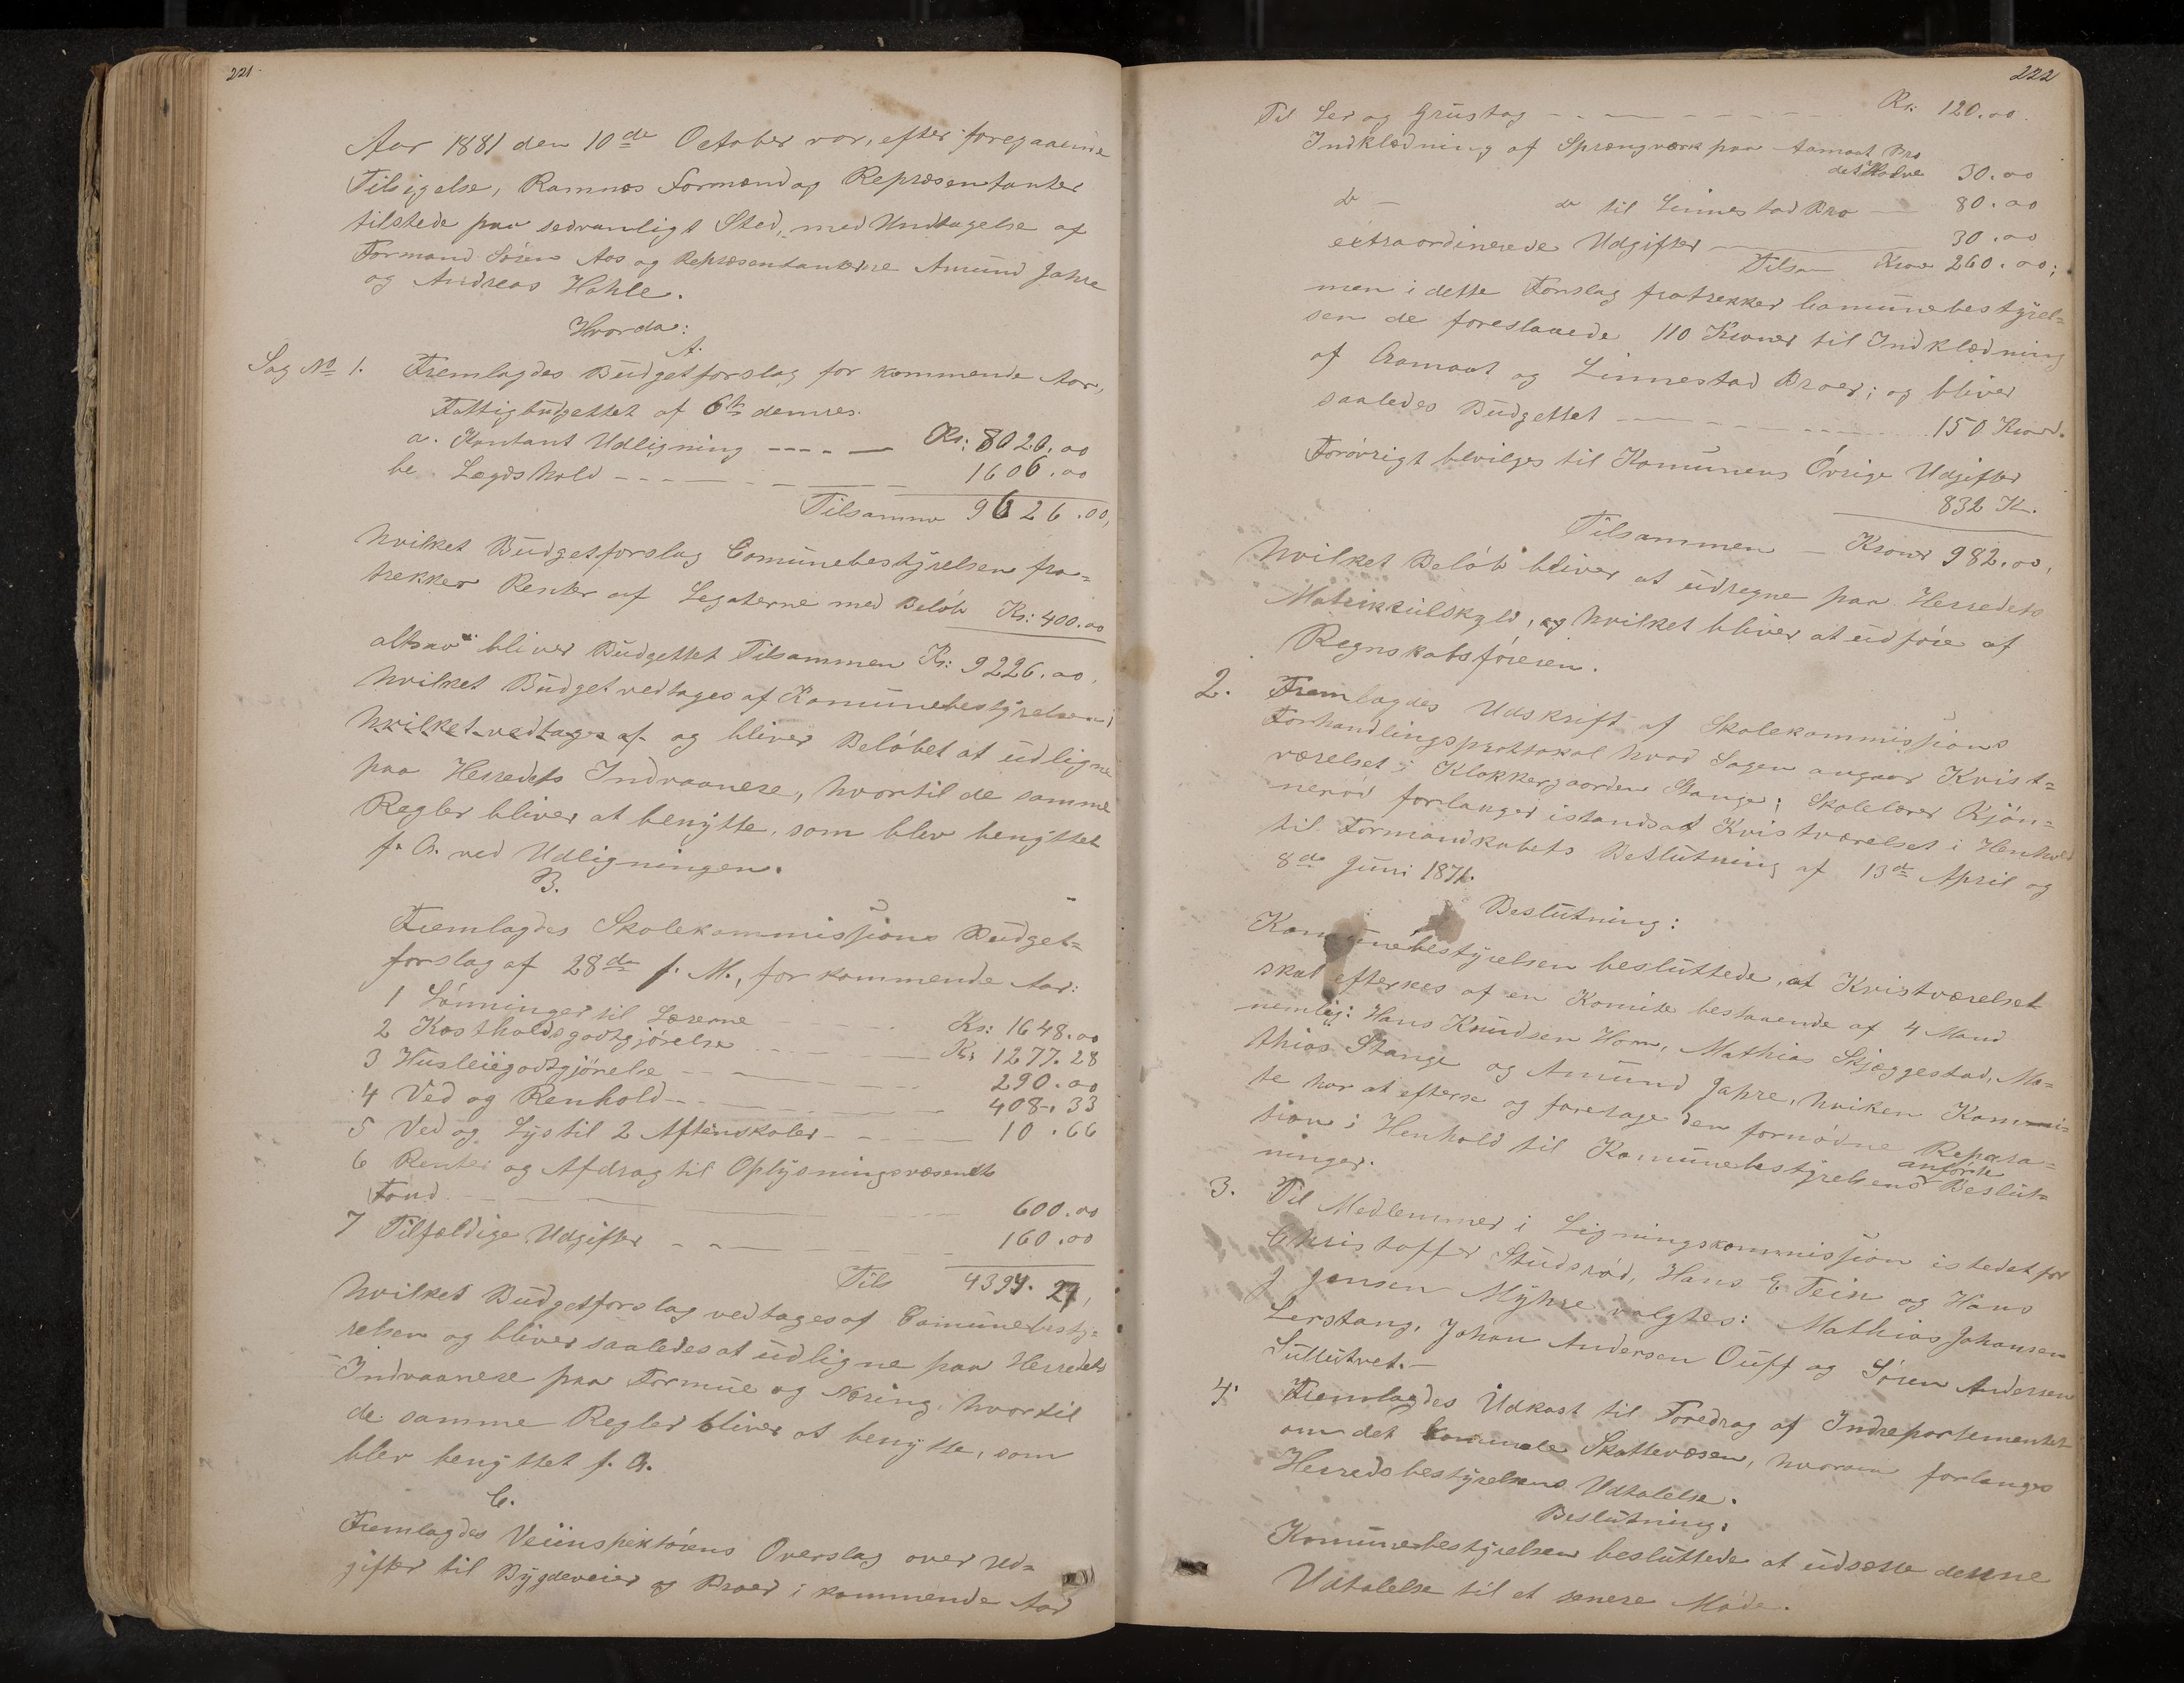 221
Aar 1881 den 10de October var, efter foregaaende
Tilsigelse, Ramnes Formænd og Repræsentanter
tilstede paa sedvanligt Sted, med Undtagelse af
Formand Søren Aos og Repræsentanterne Amund Jahre
og Andreas Hahle.
Hvorda:
A.
Sag No 1. Fremlagdes Budgetforslag for kommende Aar,
Fattigbudgettet af 6te dennes.
a. Kontant Udligning ---- Kr: 8020.00
be. Lægdshold ---- 1606.00
Tilsammen 9626.00,
hvilket Budgetforslag Comunebestyrelsen fra-
trekker Renter af Legaterne med Beløb Kr: 400.00
altsaa bliver Budgettet Tilsammen Kr: 9226.00.
hvilket Budget vedtages af Komunebestyrelsen;
hvilket vedtages af og bliver Beløbet at udligne
paa Herredets Indvaanere, hvortil de samme
Regler bliver at benytte, som blev benyttet
f. A. ved Udligningen.
B.
Fremlagdes Skolekommissions Budget=
forslag af 28de f. M., for kommende Aar:
1 Lønninger til Lærerne ---- Kr: 1648.00
2 Kostholdsgodtgjørelse ---- Kr 1277.28
3 Husleiegodtgjørelse ---- 290.00
4 Ved og Renhold ---- 408.33
5 Ved og Lys til 2 Aftenskoler ---- 10.66
6 Renter og Afdrag til Oplysningsvæsenets
Fond ---- 600.00
7 Tilfældige Udgifter ---- 160.00
Tils 4394.27,
hvilket Budgetforslag vedtages af Comunebesty-
relsen og bliver saaledes at udligne paa Herredets
Indvaanere paa Formue og Næring, hvortil
de samme Regler bliver at benytte, som
blev benyttet f. A.
C.
Fremlagdes Veiinspektørens Overslag over Ud=
gifter til Bygdeveier og Broer i kommende Aar
222
Til Ler og Grustag ---- Kr: 120.00
Indklædning af Sprængværk paa Aamaat Bro
det Halve 30.00
do - do til Linnestad Bro 80.00
extraordinerede Udgifter 30.00
Tilsa Kroner 260.00;
men i dette Forslag fratrekker Comunebestyrel=
sen de foreslaaede 110 Kroner til Indklædning
af Aamaat og Linnestad Broer; og bliver
saaledes Budgettet ---- 150 Kroner.
Forøvrigt bevilges til Komunens Øvrige Udgifter
832 K.
Tilsammen - Kroner 982.00,
hvilket Beløb bliver at udregne paa Herredets
Matrikkulskyld, og hvilket bliver at udføre af
Regnskabsføreren.
2. Fremlagdes Udskrift af Skolekommissions
Forhandlingsprotokol hvad Sagen angaar Kvist=
værelset i Klokkergaarden Stange; Skolelærer Kjøn=
nerød forlanger istandsat Kvistværelset i Henhold
til Formandskabets Beslutning af 13de April og
8de Juni 1871.
Beslutning:
Komunebestyrelsen besluttede, at Kvistværelset
skal eftersees af en Komite bestaaende af 4 Mand
nemlig: Hans Knudsen Horn, Mathias Skjæggestad, Ma=
thias Stange og Amund Jahre, hviken Kommi-
te har at efterse og foretage den fornødne Repara=
tion i Henhold til Komunebestyrelsens anførte Beslut=
ninger.
3. Til Medlemmer i Ligningskommission istedet for
Christoffer Studsrød, Hans E. Tein og Hans
J Jensen Myhre valgtes: Mathias Johansen
Lerstang, Johan Andersen Ouff og Søren Andersen
Sullutvet.-
4. Fremlagdes Udkast til Foredrag af Indrepartementet
om det komunale Skattevæsen, hvorom forlanges
Herredsbestyrelsens Udtalelse.
Beslutning.
Komunebestyrelsen besluttede at udsætte denne
Udtalelse til et senere Møde.